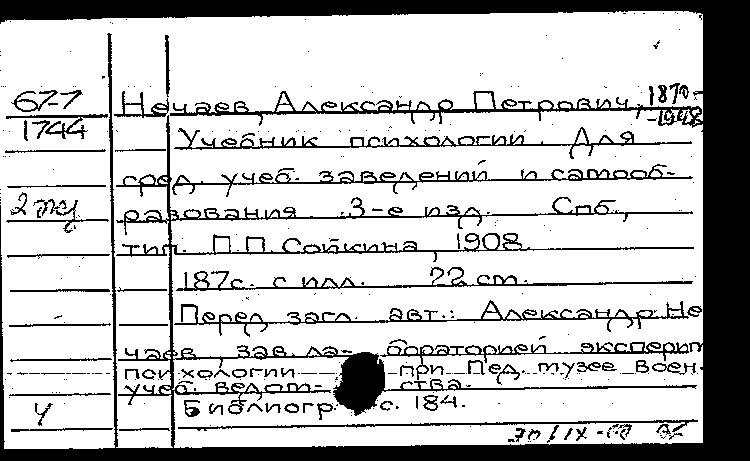 67-7
1744
Нечаев, Александр Петрович, 1870-
-1948
Учебник психологии. Для
сред. учеб. заведений и самооб-
разования. 3-е изд. Спб.,
тип. П.П. Сойкина, 1908.
187с. с илл. 22 см.
Перед загл. авт.: Александр Не
чаев, зав. ла- бораторией эксперим
психологии при Пед. музее воен.
учеб. ведом- ства.
Библиогр с. 184.